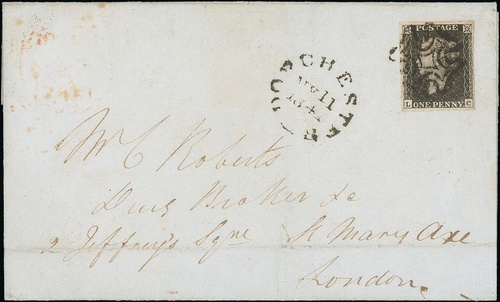 POSTAGE
L C
ONE PENNY
DORCHESTER
MY 11
184
Mr C Roberts
Drug Broker &c
2 Jeffrey's Sqre St Mary Axe
London